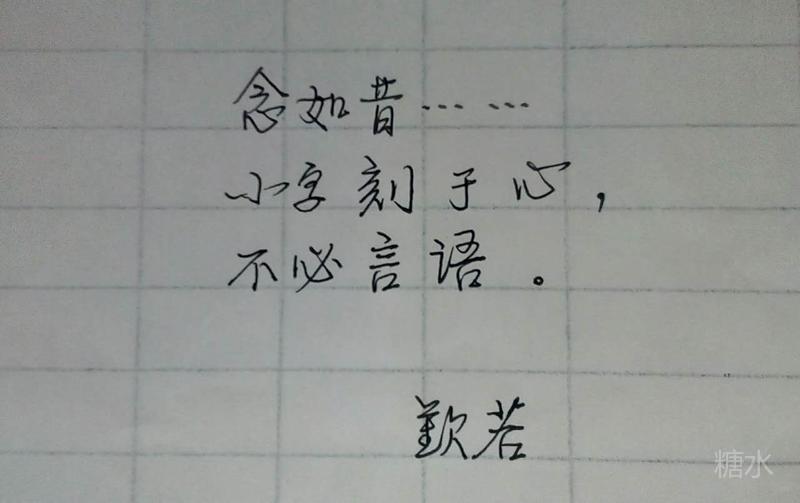 念如昔……
小字刻于心，
不必言语。
歎若
糖水